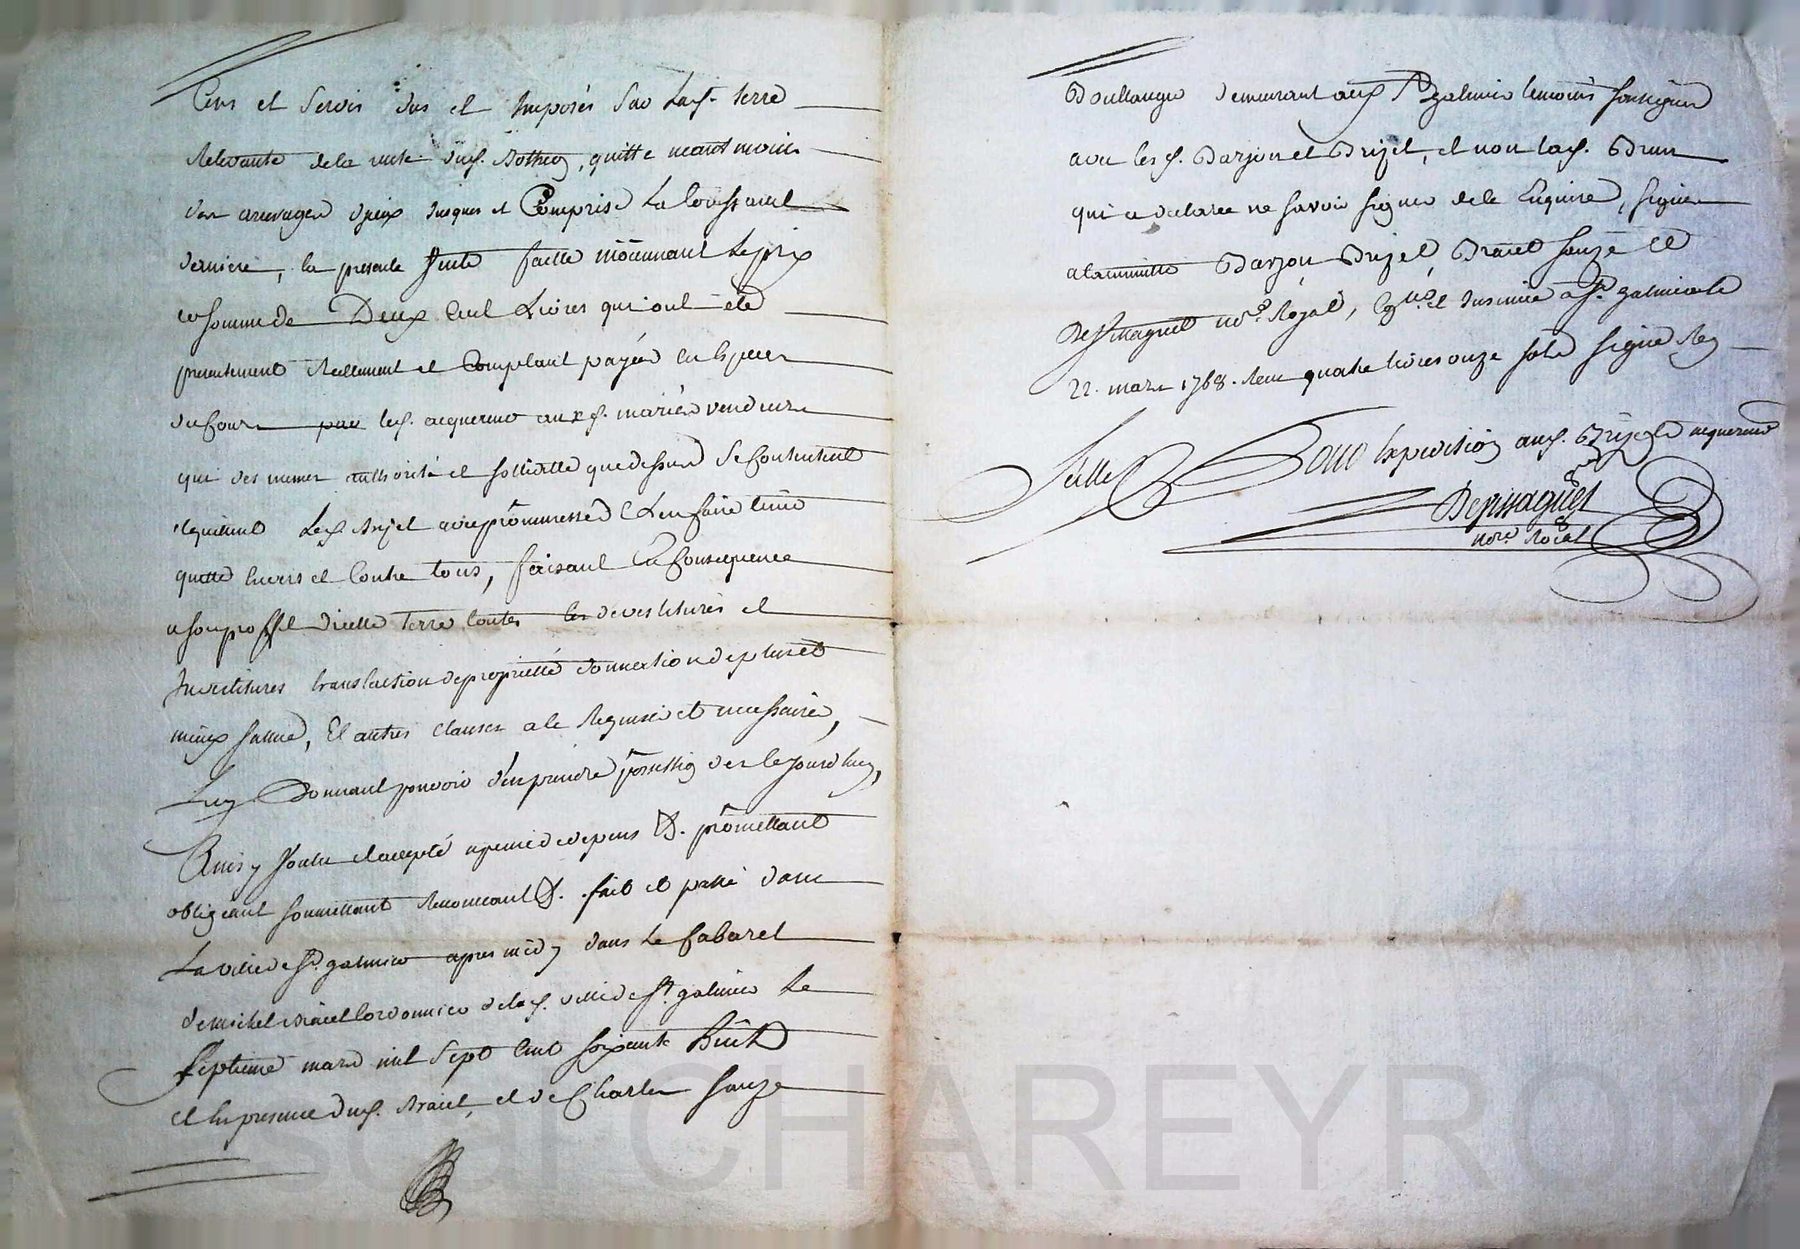 Cens et servis dus et imposés sur lad. terre
Relevante dela rente dud. Botheon, quitte neantmoins
des arrerages d'yceux jusques et Comprise La Toussaint
derniere, la presente vente faitte moiennant Le prix
et somme de Deux Cent Livres qui ont été
presentement Reellement et Comptant payée en Especes
du Cours par led. acquereur auxd. mariés vendeurs
qui des memes authorité et sollidité que dessus se Contentent
et quittent Led. Brijet avec prômmesse de L'en faire tenir
quitte Envers et Contre tous, faisant En Consequence
a son proffit d'icelle terre toutes les devestitures et
Investitures translation de proprietté connextion de plus et
mieux value, Et autres clauses a ce Requises et necessaires,
Luy Donnant pouvoir d'en prendre possession des ce jourd'huy,
Ainsy voulu et accepté a peine de depens &. prômettant
obligeant soumettant Renonceant &. fait et passé dans
La ville de St. galmier apres midy dans Le Cabaret
de michel Braiet Cordonnier de lad. ville de St. galmier Le
septieme mars mil sept Cent soixante huit
et En presence dud. Braiet, et de Charles sauze
Boullanger demeurant aux St galmier temoins soussignés
avec lesd. Barjon et Brijet, et non lad. Brun
qui a declarée ne savoir signer de ce Enquise, signé
a la minutte Barjon Brijet Braiet sauze et
Dessinaguet nore. Royal, Con.lé et Insinué a St. galmier le
22. mars 1768. Recu quatre livres onze sols signé Rey
Scellé
Pour Expedition aud. Brijet acquereur
Depinaguet
nore. Roial
scal CHAREYRON